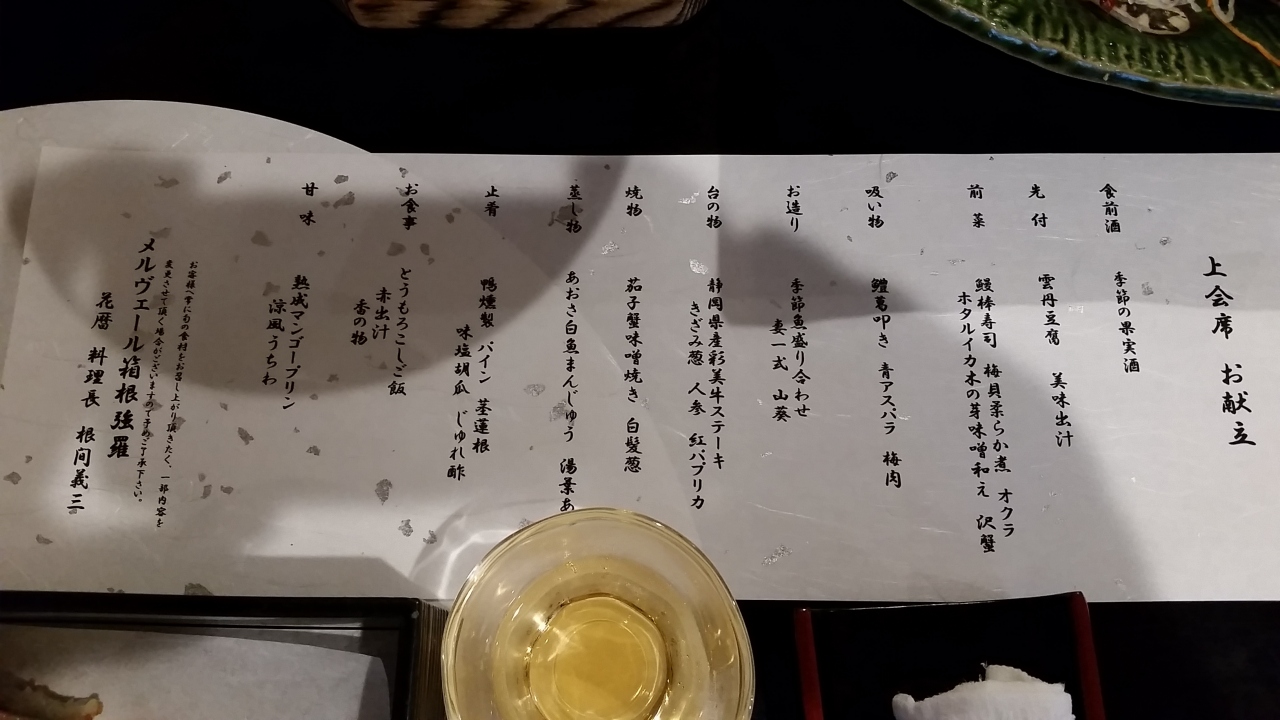 上会席 お献立
食前酒
季節の果実酒
先付
雲丹豆腐 美味出汁
前菜
鰻棒寿司 梅貝柔らか煮 オクラ
ホタルイカ木の芽味噌和え 沢蟹
吸い物
鱧葛叩き 青アスパラ 梅肉
お造り
季節魚盛り合わせ
妻一式 山葵
台の物
静岡県産彩美牛ステーキ
きざみ葱 人参 紅パプリカ
焼物
茄子蟹味噌焼き 白髪葱
蒸し物
あおさ白魚まんじゅう 湯葉あ
止肴
鴨燻製 パイン 茎蓮根
味塩胡瓜 じゅれ酢
お食事
とうもろこしご飯
赤出汁
香の物
甘味
熟成マンゴープリン
涼風うちわ
お客様へ常に旬の食材をお召し上がり頂きたく、一部内容を
変更させて頂く場合がございますので予めご了承下さい。
メルヴェール箱根強羅
花暦 料理長 根間義三